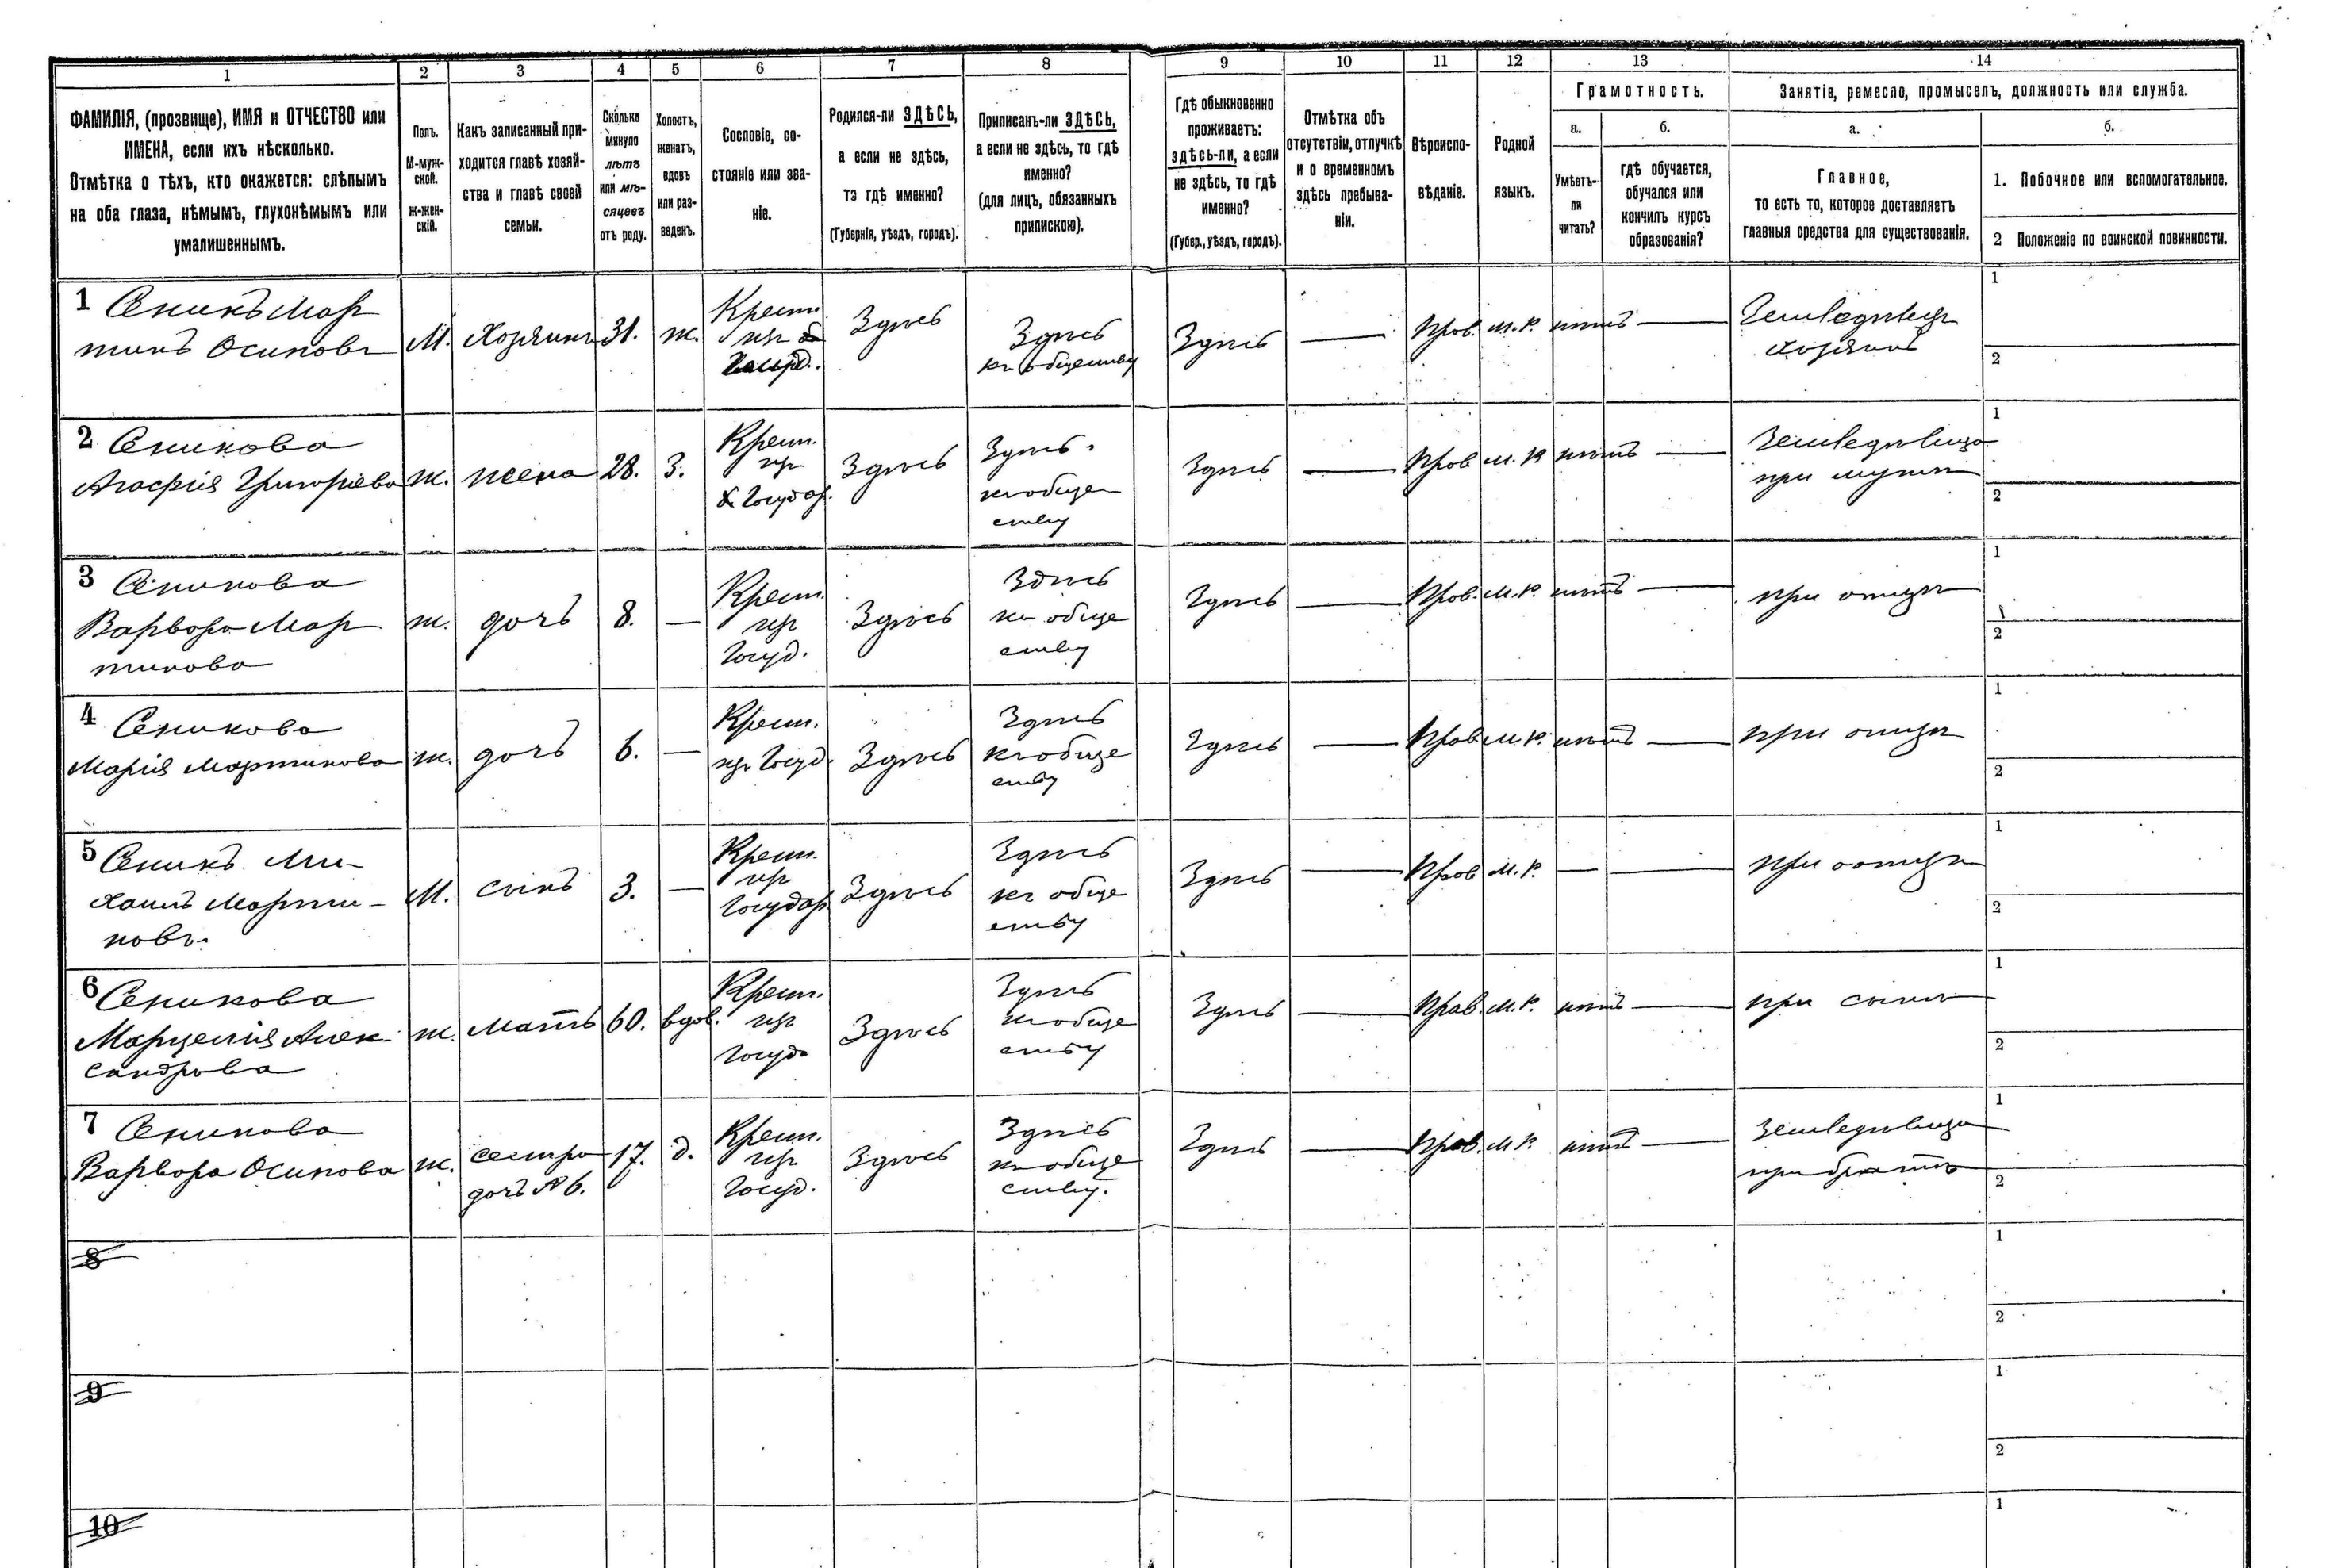 1 2 3 4 5 6 7 8 9 10 11 12 13 14
ФАМИЛІЯ, (прозвище), ИМЯ и ОТЧЕСТВО или
ИМЕНА, если ихъ нѣсколько.
Отмѣтка о тѣхъ, кто окажется: слѣпымъ
на оба глаза, нѣмымъ, глухонѣмымъ или
умалишеннымъ.
Полъ.
М-муж-
ской.
Ж-жен-
скій.
Какъ записанный при-
ходится главѣ хозяй-
ства и главѣ своей
семьи.
Сколько
минуло
лѣтъ
или мѣ-
сяцевъ
отъ роду.
Холостъ,
женатъ,
вдовъ
или раз-
веденъ.
Сословіе, со-
стояніе или зва-
ніе.
Родился-ли ЗДѢСЬ,
а если не здѣсь,
то гдѣ именно?
(Губернія, уѣздъ, городъ).
Приписанъ-ли ЗДѢСЬ,
а если не здѣсь, то гдѣ
именно?
(для лицъ, обязанныхъ
припискою).
Гдѣ обыкновенно
проживаетъ:
здѣсь-ли, а если
не здѣсь, то гдѣ
именно?
(Губер., уѣздъ, городъ).
Отмѣтка объ
отсутствіи, отлучкѣ
и о временномъ
здѣсь пребыва-
ніи.
Вѣроиспо-
вѣданіе.
Родной
языкъ.
Грамотность.
а. б.
Умѣетъ-
ли
читать?
гдѣ обучается,
обучался или
кончилъ курсъ
образованія?
Занятіе, ремесло, промыселъ, должность или служба.
а. б.
Главное,
то есть то, которое доставляетъ
главныя средства для существованія.
1. Побочное или вспомогательное.
2 Положеніе по воинской повинности.
1 Сеникъ Мар
тинъ Осиповъ
М.
Хозяинъ
31.
ж.
Крест.
изъ
Здѣсь
Здѣсь
къ обществу
Здѣсь
—
Прав.
м. р.
нѣтъ
—
Земледѣлецъ
хозяинъ
1
2
2 Сеникова
Агафія Григоріева
ж.
жена
28.
З.
Крест.
изъ
Государ.
Здѣсь
Здѣсь.
къ обще
ству
Здѣсь
—
Прав
м. р
нѣтъ
—
Земледѣлица
при мужѣ
1
2
3 Сеникова
Варвара Мар
тинова
ж.
дочь
8.
—
Крест.
изъ
Госуд.
Здѣсь
Здѣсь
къ обще
ству
Здѣсь
—
Прав.
м. р.
нѣтъ
—
при отцѣ
1
2
4 Сеникова
Марія Мартинова
ж.
дочь
6.
—
Крест.
изъ Госуд.
Здѣсь
Здѣсь
къ обще
ству
Здѣсь
—
Прав
м. р.
нѣтъ
—
при отцѣ
1
2
5 Сеникъ Ми-
хаилъ Марти-
новъ.
М.
сынъ
3.
—
Крест.
изъ
Государ
Здѣсь
Здѣсь
къ обще
ству
Здѣсь
—
Прав
м. р.
—
—
при отцѣ
1
2
6 Сеникова
Марцелія Алек-
сандрова
ж.
мать
60.
вдов.
Крест.
изъ
Госуд
Здѣсь
Здѣсь
къ обще
ству
Здѣсь
—
Прав.
м. р.
нѣтъ
—
при сынѣ
1
2
7 Сеникова
Варвара Осипова
ж.
сестра
дочь № 6.
17.
д.
Крест.
изъ
Госуд.
Здѣсь
Здѣсь
къ обще
ству.
Здѣсь
—
Прав.
м. р.
нѣтъ
—
Земледѣлица
при братѣ
1
2
8
1
2
9
1
2
10
1